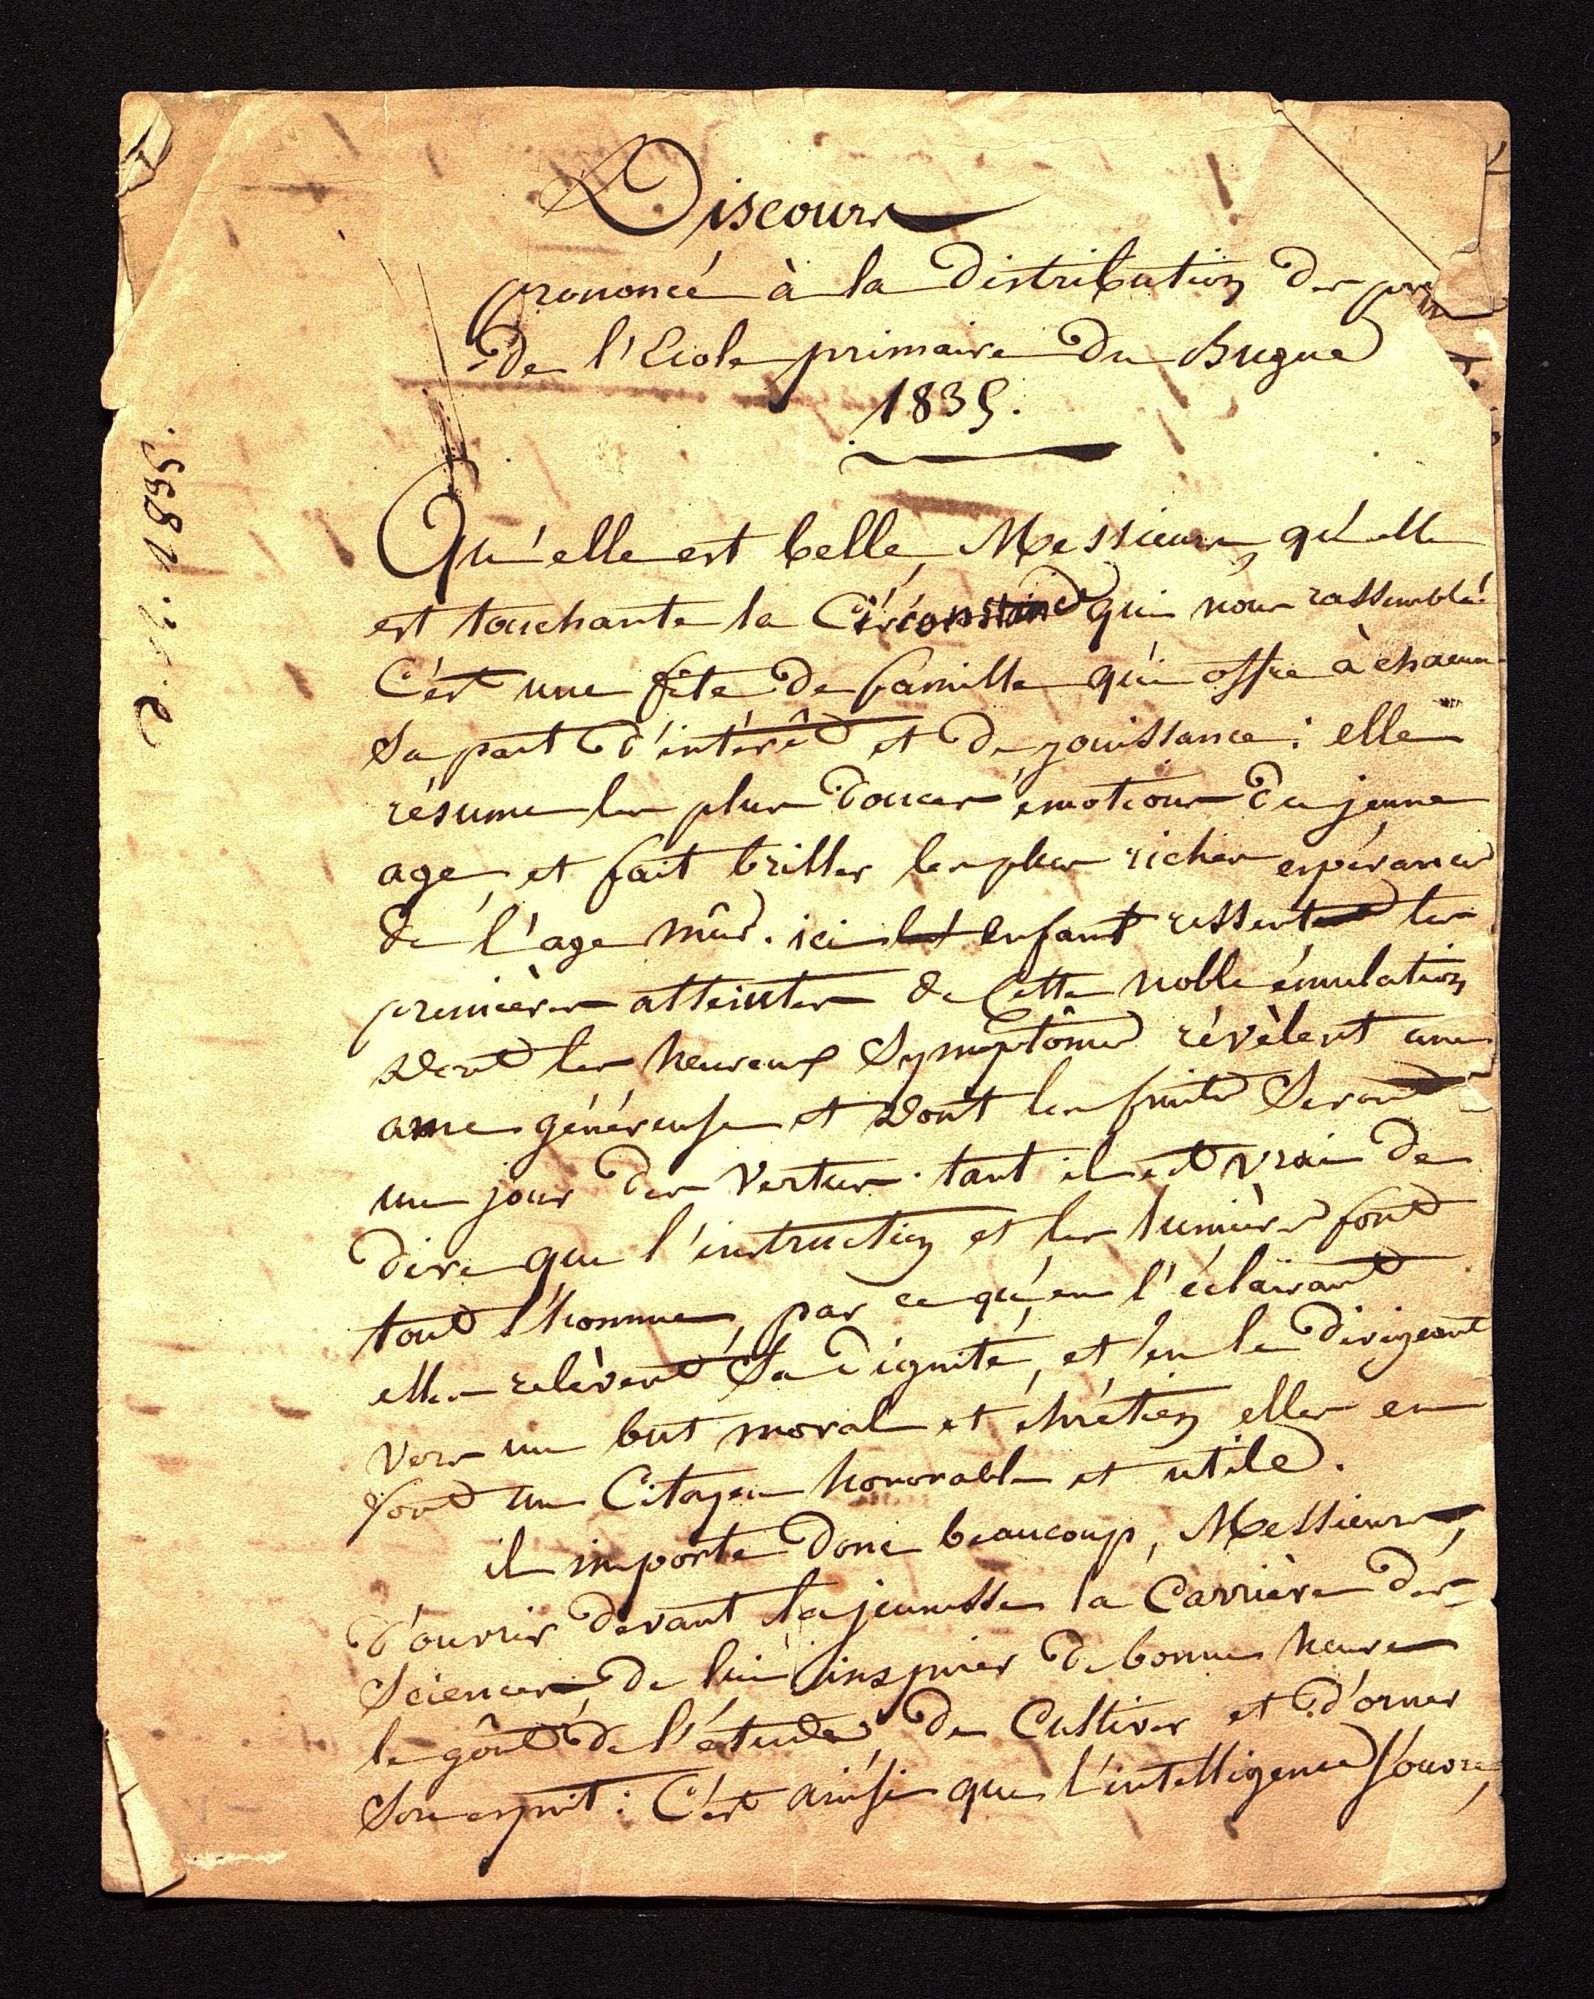 Discours
prononcé à la distribution des
de l'Ecole primaire du Bugue
1835.
Qu'elle est belle, Messieurs, qu'elle
est touchante la Circonstance qui nous rassemble.
C'est une fête de famille qui offre à chacun
Sa part d'intérêt et de jouissance : elle
résume les plus douces émotions du jeune
age, et fait briller les plus riches espérances
de l'age mûr. ici enfant ressent les
premières atteintes de Cette noble émulation
dont les heureux Symptômes révèlent une
ame généreuse et dont les fruits Seront
un jour des Vertus. tant il est vrai de
dire que l'instruction et les lumières font
tout l'homme, par ce qu'en l'éclairant
elles relèvent Sa dignité, et en le dirigeant
vers un but moral et chrétien elles en
font un Citoyen honorable et utile.
il importe donc beaucoup, Messieurs,
d'ouvrir devant la jeunesse la Carrière des
Sciences, de lui inspirer de bonne heure
le goût de l'étude, de Cultiver et d'orner
Son esprit : C'est ainsi que l'intelligence s'ouvre,
1835.